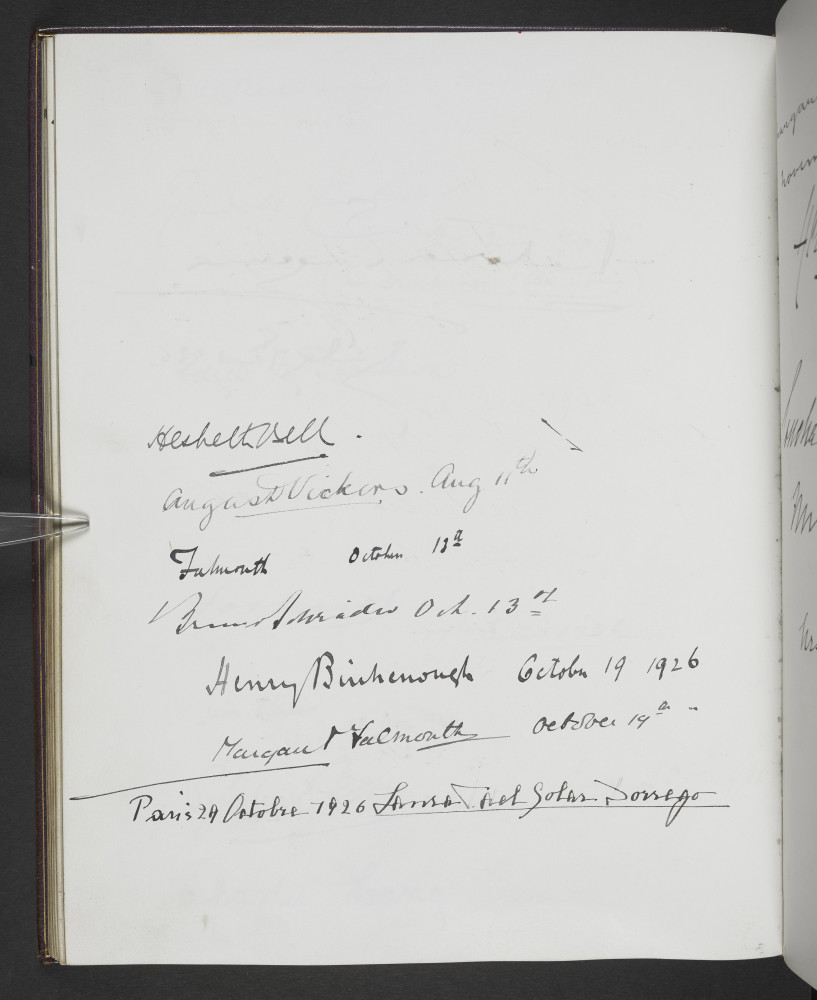 Hesketh Bell.
August Vickers. Aug 11th
Falmouth October 12th
Bruno Schrader Oct. 13th
Henry Birchenough October 19 1926
Margaret Falmouth October 19th "
Paris 29 Octobre 1926 del Solar Dorrego